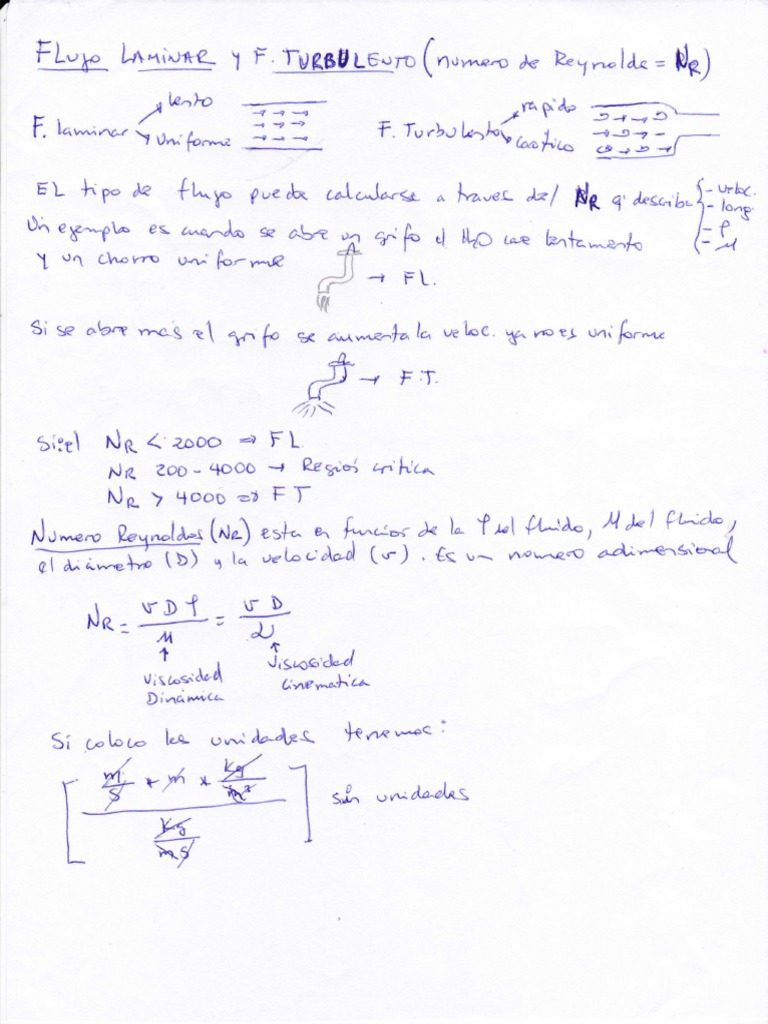 FLUJO LAMINAR y F. TURBULENTO (numero de Reynolds = NR)
F. laminar lento uniforme
F. Turbulento rapido caotico
EL tipo de flujo puede calcularse a traves del NR q' describe - veloc. - long. - ρ - μ
Un ejemplo es cuando se abre un grifo el H2O cae lentamente
y un chorro uniforme → FL.
Si se abre más el grifo se aumenta la veloc. ya no es uniforme
→ F.T.
Si: el NR < 2000 ⇒ FL.
NR 200 - 4000 → Región critica
NR > 4000 ⇒ FT
Numero Reynoldos (NR) esta en funcion de la ρ del fluido, μ del fluido,
el diámetro (D) y la velocidad (v). Es un numero adimensional
NR = v D ρ / μ = v D / ν
↑ Viscosidad Dinámica
↑ Viscosidad Cinematica
Si coloco las unidades tenemos:
[ m/s * m * kg/m³ / kg/ms ] sin unidades